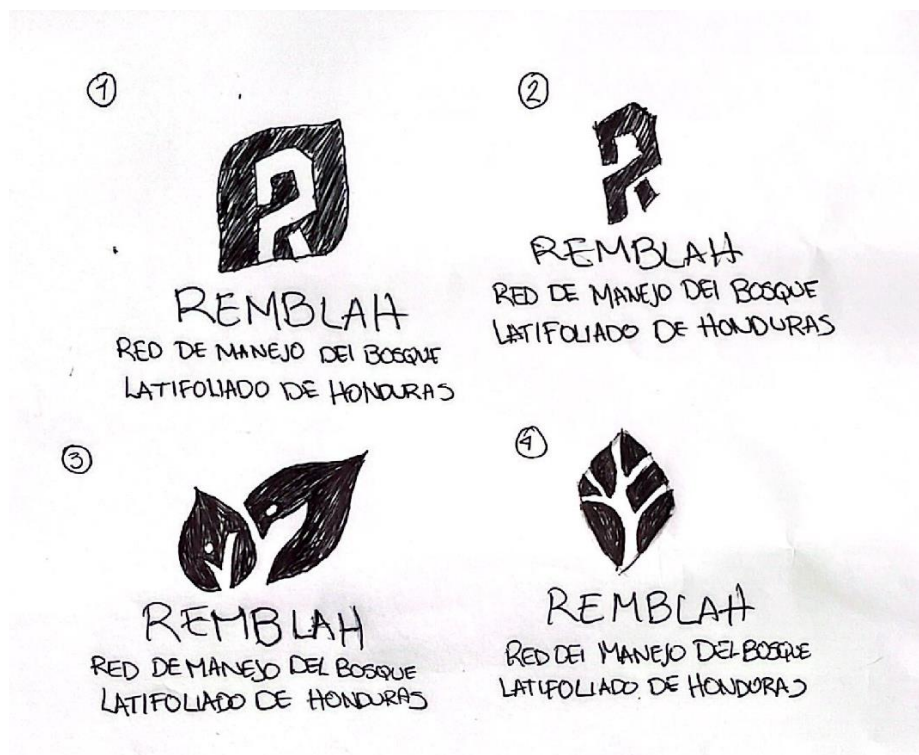 1
REMBLAH
RED DE MANEJO DEL BOSQUE
LATIFOLIADO DE HONDURAS
2
REMBLAH
RED DE MANEJO DEL BOSQUE
LATIFOLIADO DE HONDURAS
3
REMBLAH
RED DE MANEJO DEL BOSQUE
LATIFOLIADO DE HONDURAS
4
REMBLAH
RED DEL MANEJO DEL BOSQUE
LATIFOLIADO DE HONDURAS